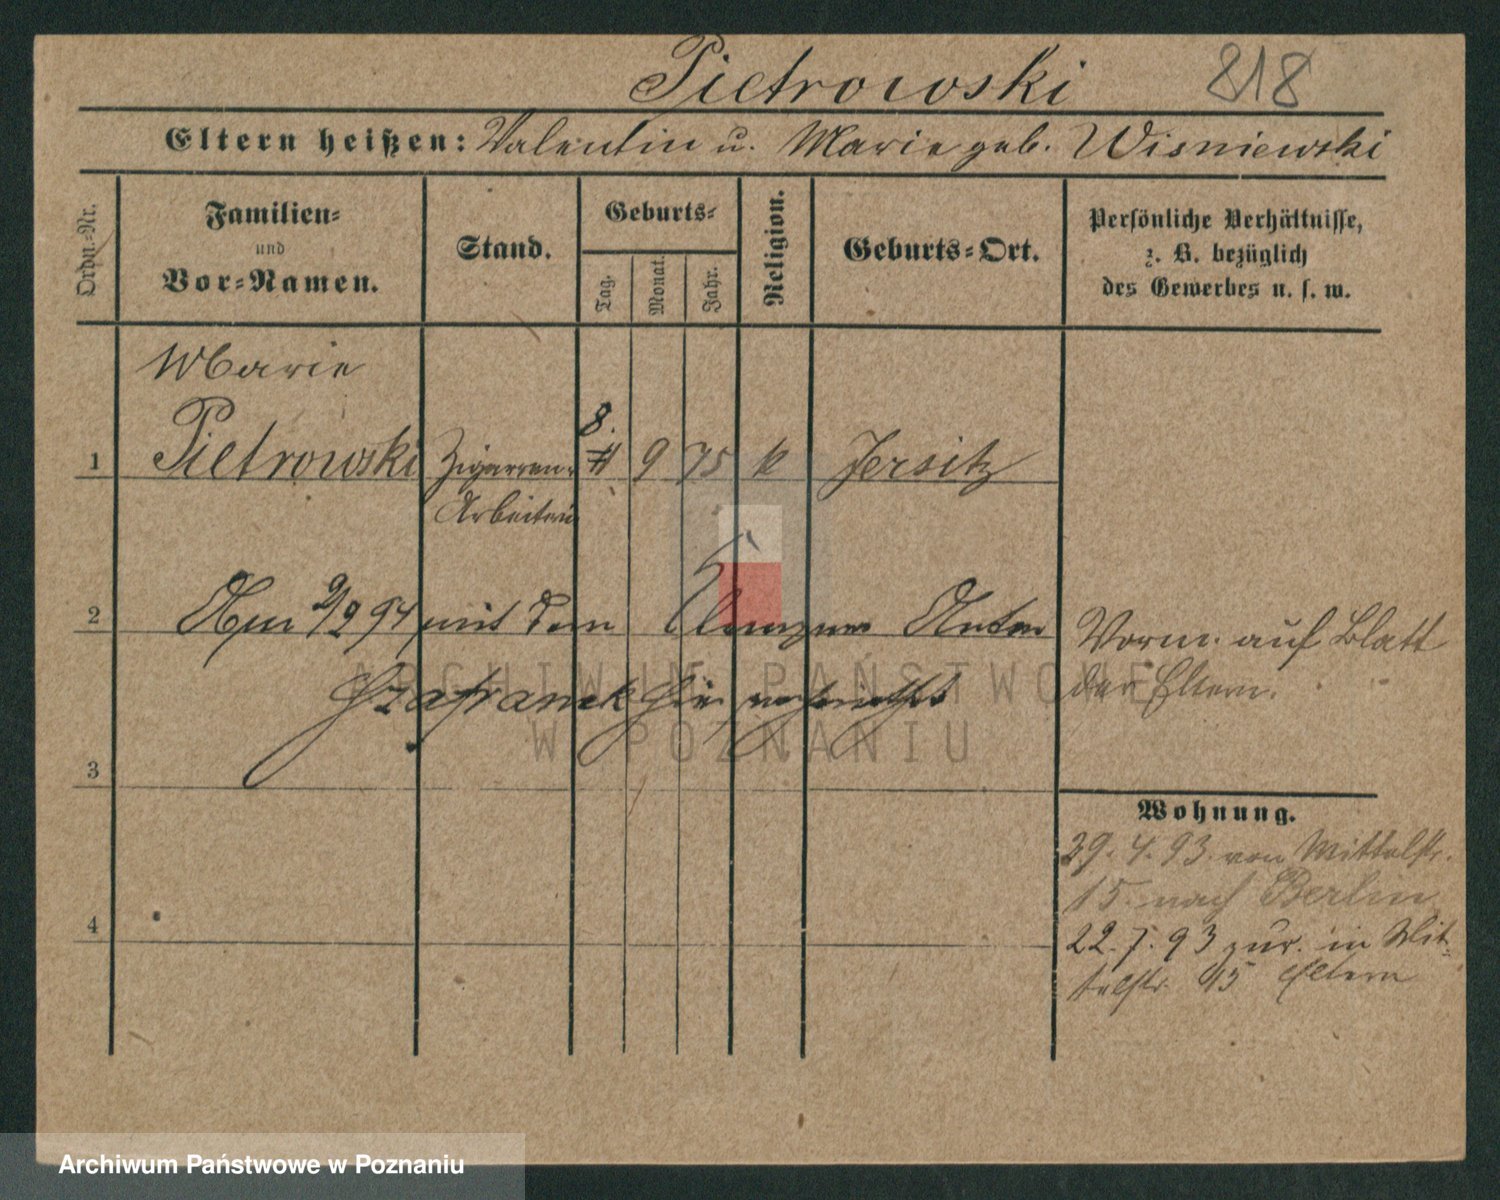 Pietrowski 818
Eltern heißen: Valentin u. Marie geb. Wisniewski
Ordn.-Nr.
Familien-
und
Vor-Namen.
Stand.
Geburts-
Tag.
Monat.
Jahr.
Religion.
Geburts-Ort.
Persönliche Verhältnisse,
z. B. bezüglich
des Gewerbes u. s. w.
Marie
8.
1 Pietrowski Zigarren- 9 75 k Jersitz
Arbeiterin
2 Am 9/2 94 mit dem Klempner Anton
Szafranek hier verheirathet
Vorm. auf Blatt
der Eltern.
3
Wohnung.
29. 4. 93. von Mittelstr.
15. nach Berlin
22. 7. 93 zur. in Mit-
telstr. 15 Eltern
4
ARCHIWUM PAŃSTWOWE
W POZNANIU
Archiwum Państwowe w Poznaniu